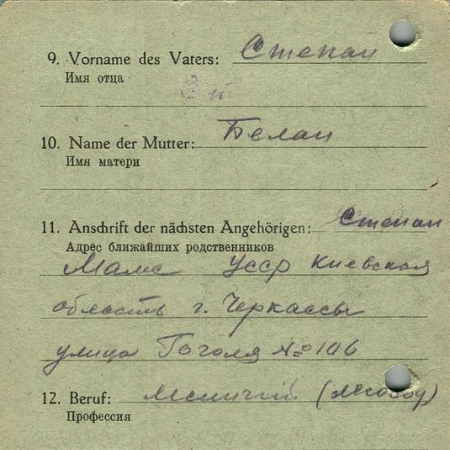 9. Vorname des Vaters: Степан
Имя отца
10. Name der Mutter: Белан
Имя матери
11. Anschrift der nächsten Angehörigen: Степан
Адрес ближайших родственников
УССР Киевская
область г. Черкассы
улица Гоголя № 106
12. Beruf:
Профессия